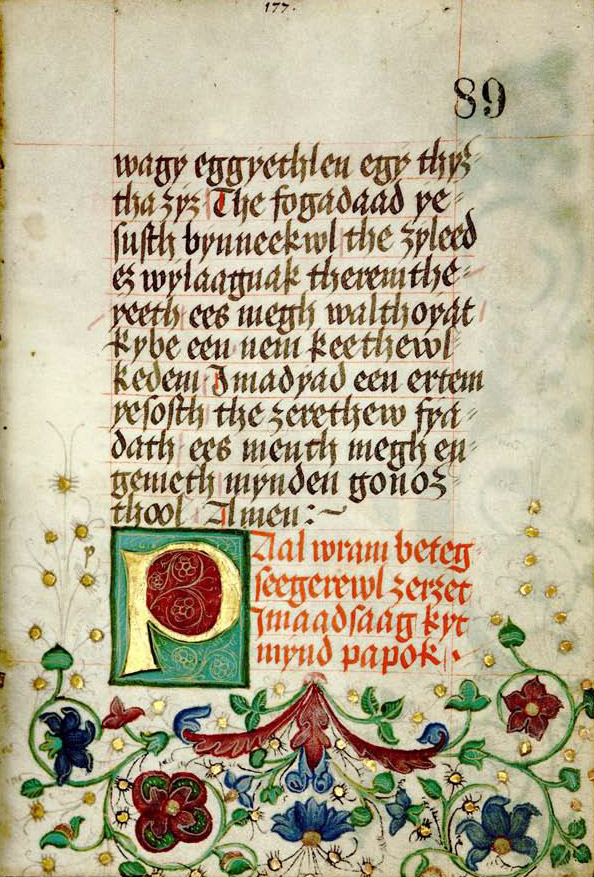 177.
89
wagy eggyethlen egy thyz=
tha zyz The fogadaad ye=
susth bynneekwl the zyleed
ez wylaagnak theremthe=
yeeth ees megh walthoyat
kybe een nem keethewl=
kedem Imadyad een ertem
yesosth the zerethew fya=
dath ees menth megh en=
gemeth mynden gonoz=
thool Almen :~
p
Paal wram beteg=
seegerewl zerzet
Imaadsaag kyt
mynd papok.